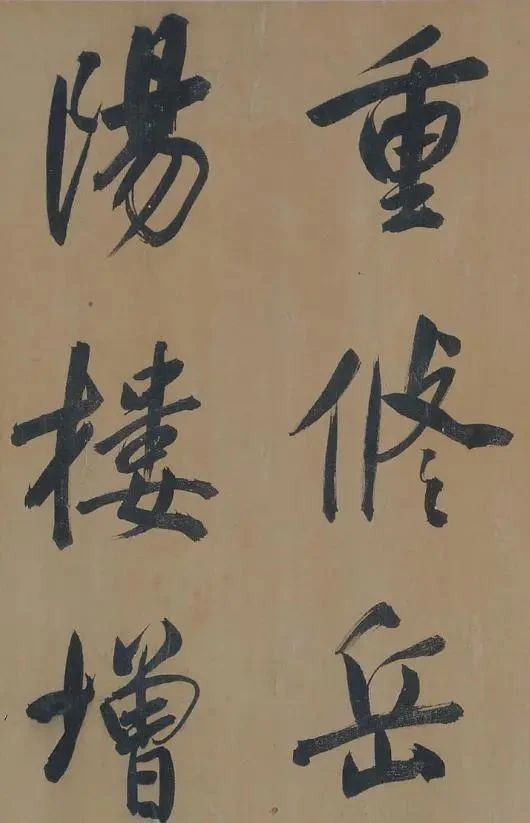 重修岳
陽樓增